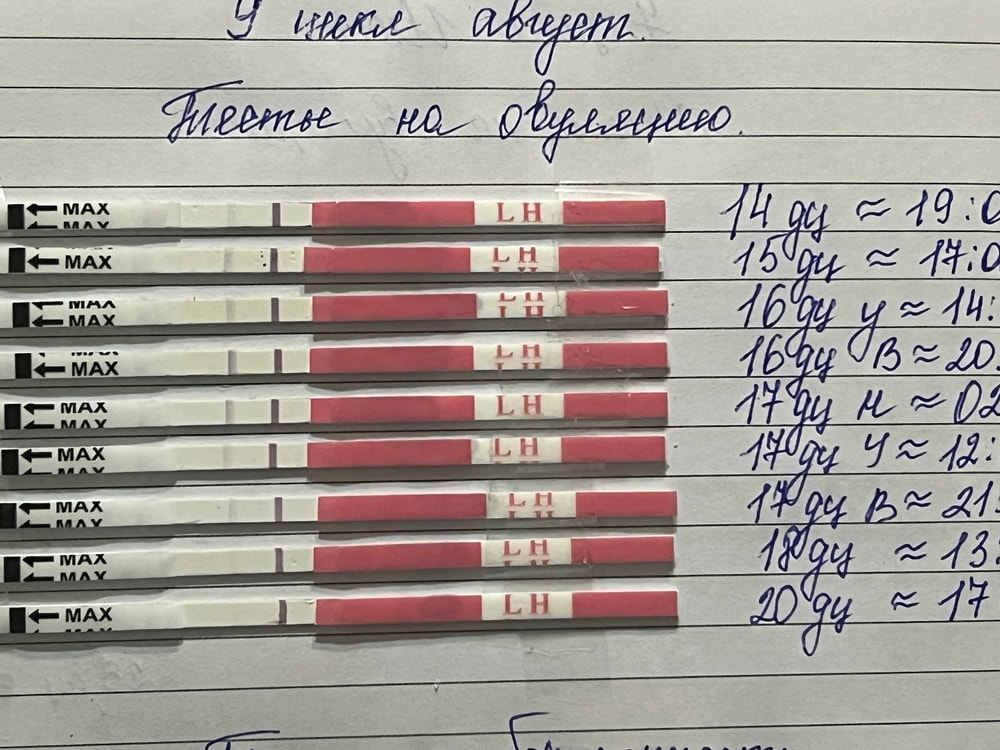 9 цикл август.
Тесты на овуляцию.
MAX LH 14 дц ≈ 19:0
MAX LH 15 дц ≈ 17:0
MAX LH 16 дц у ≈ 14:
MAX LH 16 дц в ≈ 20
MAX LH 17 дц н ≈ 02
MAX LH 17 дц у ≈ 12:
MAX LH 17 дц в ≈ 21
MAX LH 18 дц ≈ 13:
MAX LH 20 дц ≈ 17